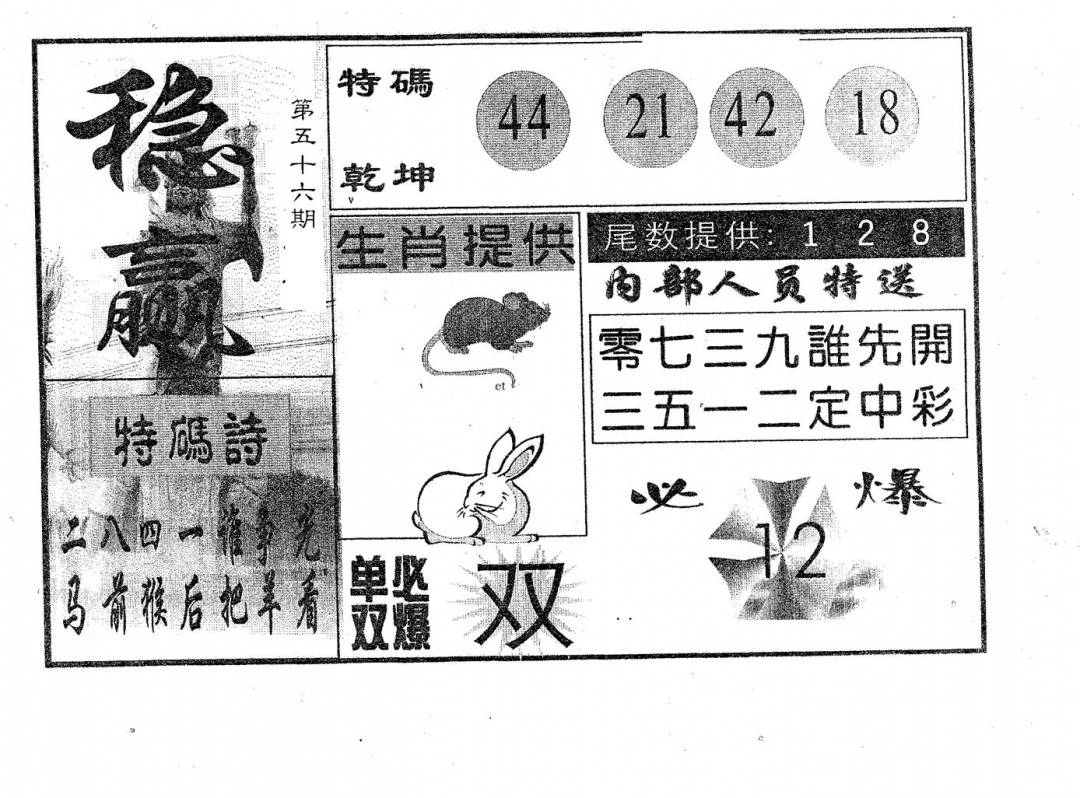 稳赢
第五十六期
特碼詩
二八四一谁争先
马前猴后把羊看
特碼
乾坤
44 21 42 18
生肖提供
et
单双必爆
双
尾数提供: 1 2 8
内部人员特送
零七三九誰先開
三五一二定中彩
必爆
12